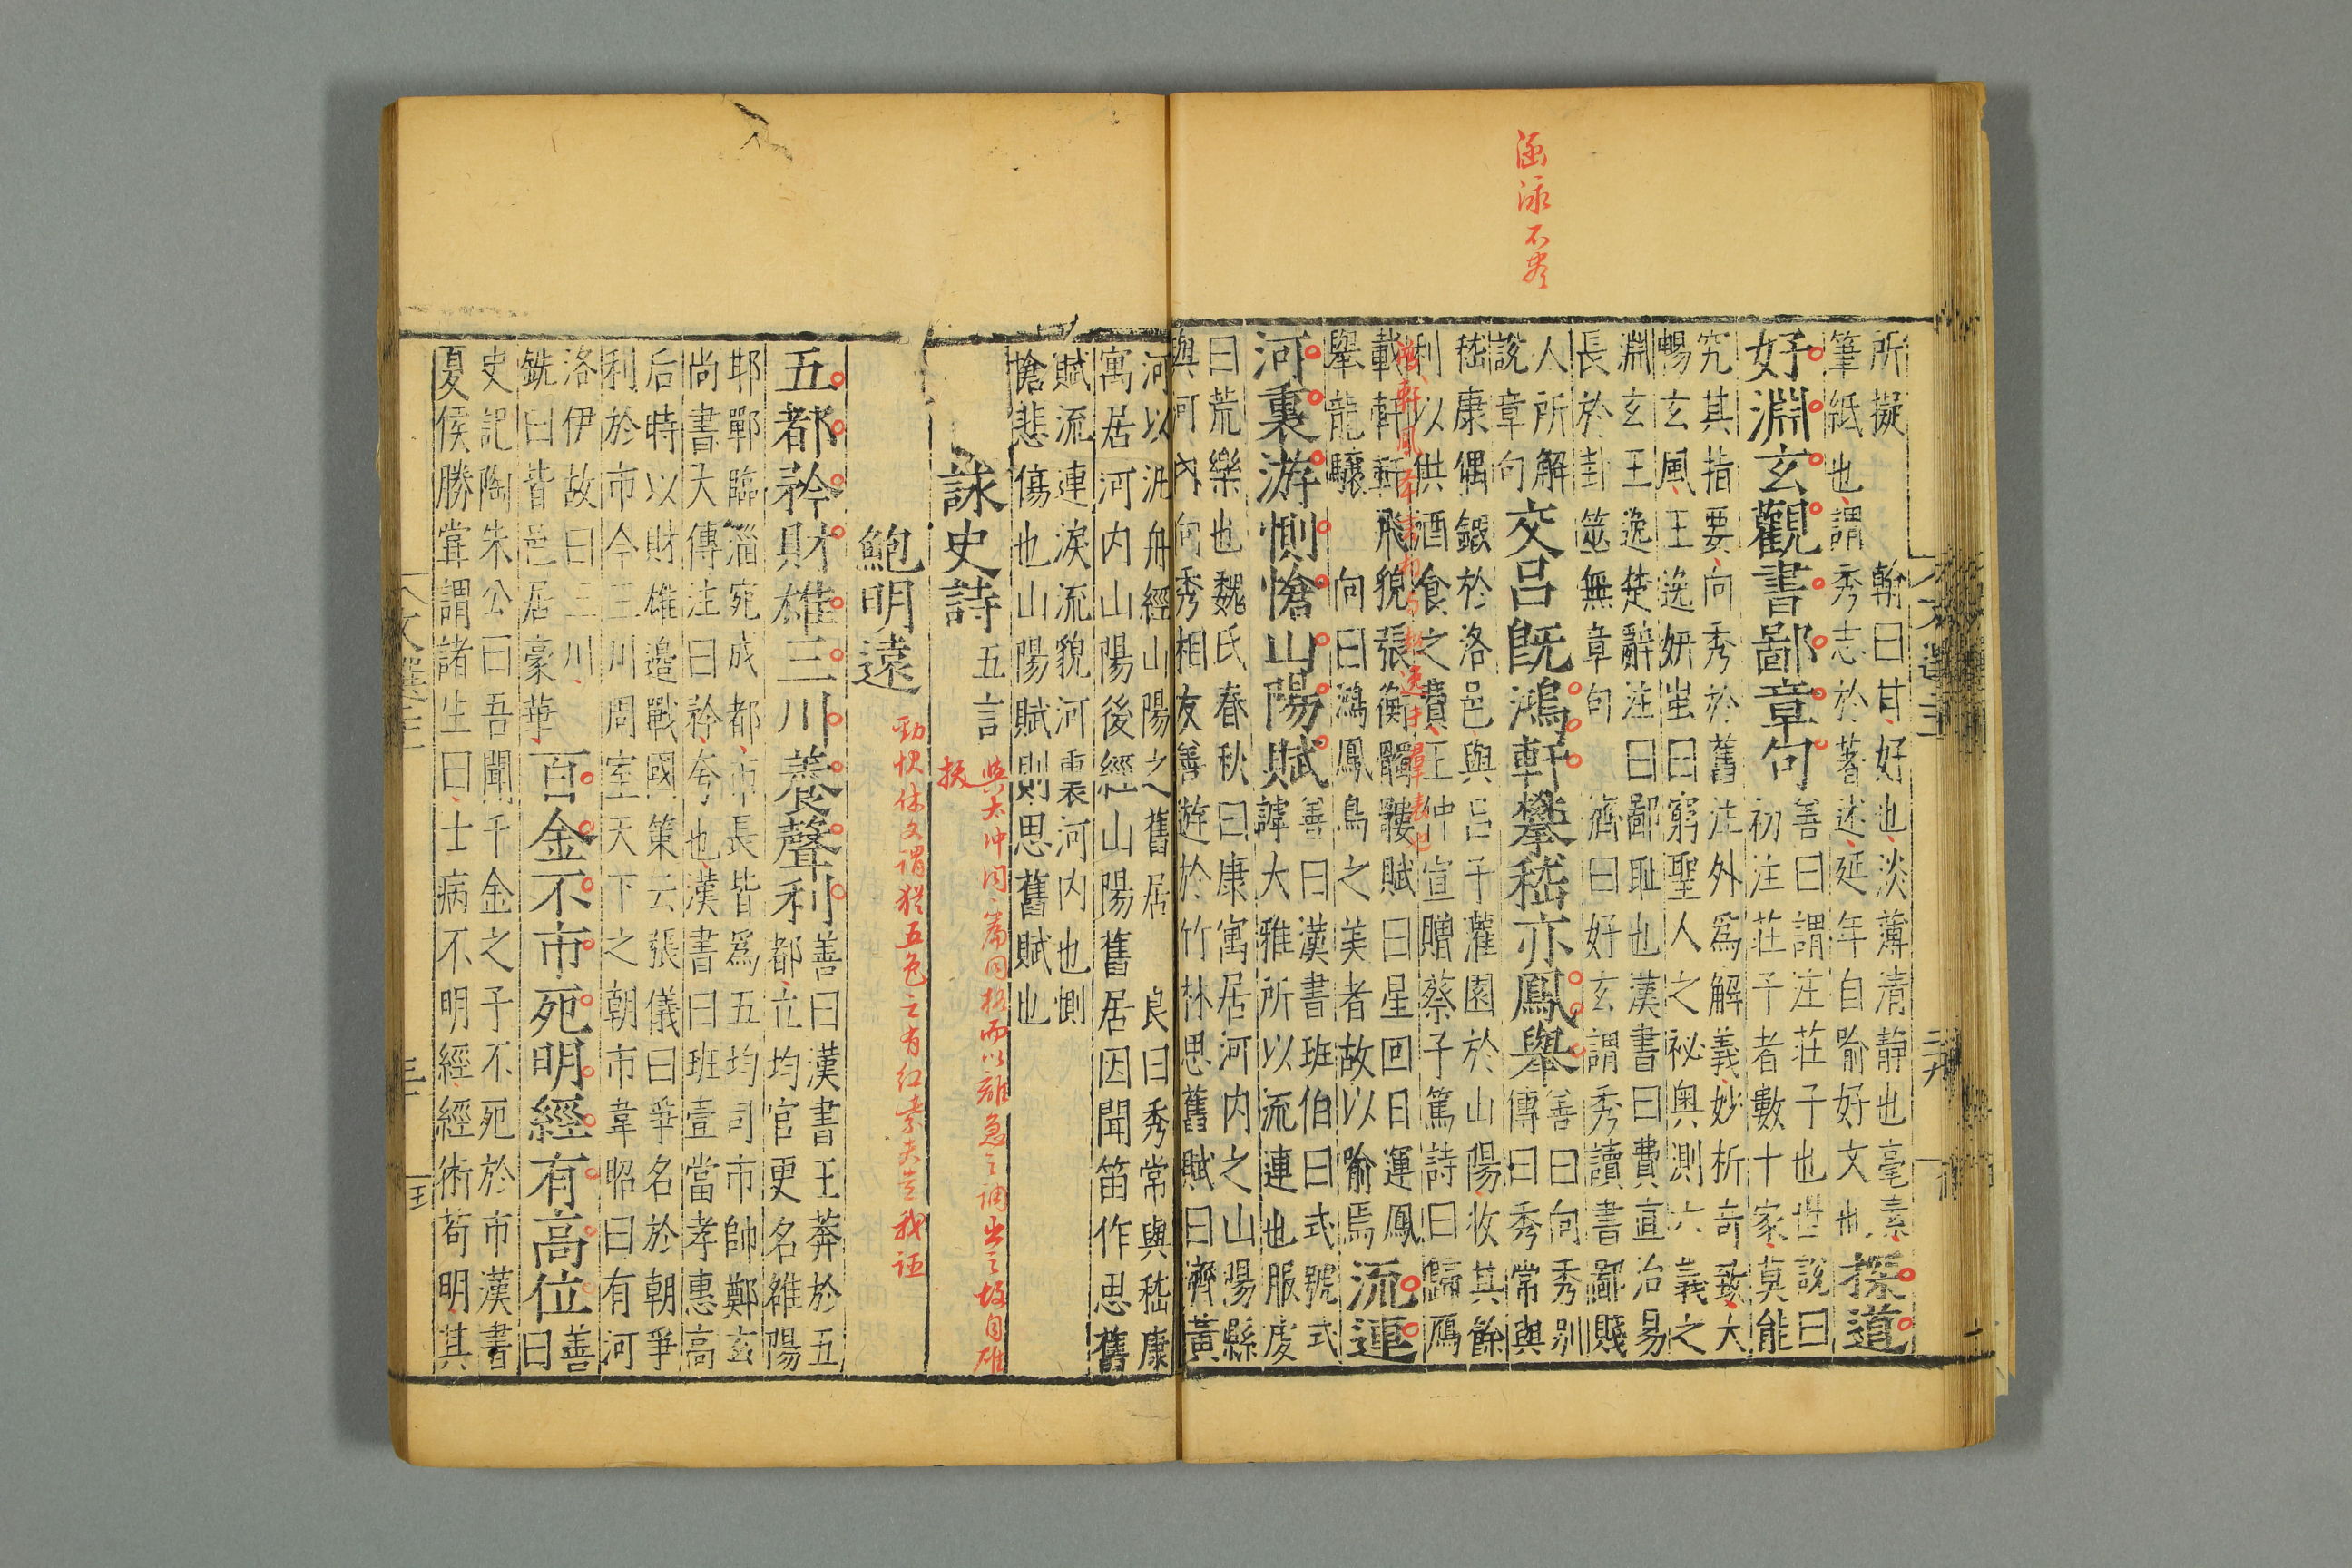 涵泳不盡
所擬
筆紙也謂秀志於著述延年自喻好文也
翰曰甘好也淡薄清靜也毫素
探道
好淵玄觀書鄙章句
善曰謂注莊子也世說曰
初注莊子者數十家莫能
究其指要向秀於舊注外為解義妙析奇致大
暢玄風王逸妍蚩曰窮聖人之祕奧測六義之
淵玄王逸楚辭注曰鄙恥也漢書曰費直治易
長於卦筮無章句
濟曰好玄謂秀讀書鄙賤
人所解
說章句
交呂旣鴻軒攀嵇亦鳳舉
善曰向秀別
傳曰秀常與
嵇康偶鍛於洛邑與呂子灌園於山陽收其餘
利以供酒食之費王仲宣贈蔡子篤詩曰歸鴈
載軒軒飛貌張衡髑髏賦曰星回日運鳳
舉龍驤
向曰鴻鳳鳥之美者故以喻焉
流連
河裏游惻愴山陽賦
善曰漢書班伯曰式號式
謼大雅所以流連也服虔
曰荒樂也魏氏春秋曰康寓居河内之山陽縣
與河内向秀相友善遊於竹林思舊賦曰濟黃
河以汎舟經山陽之舊居
良曰秀常與嵇康
寓居河内山陽後經山陽舊居因聞笛作思舊
賦流連淚流貌河裏河内也惻
愴悲傷也山陽賦則思舊賦也
詠史詩
五言
與太沖同篇同格而以離急之調出之故自雄
挺
鮑明遠
五都矜財雄三川養聲利
善曰漢書王莽於五
都立均官更名雒陽
邯鄲臨淄宛成都市長皆為五均司市帥鄭玄
尚書大傳注曰矜夸也漢書曰班壹當孝惠高
后時以財雄邊戰國策云張儀曰爭名於朝爭
利於市今三川周室天下之朝市韋昭曰有河
洛伊故曰三川
銑曰皆邑居豪華
百金不市死明經有高位
善
曰
史記陶朱公曰吾聞千金之子不死於市漢書
夏侯勝常謂諸生曰士病不明經經術苟明其